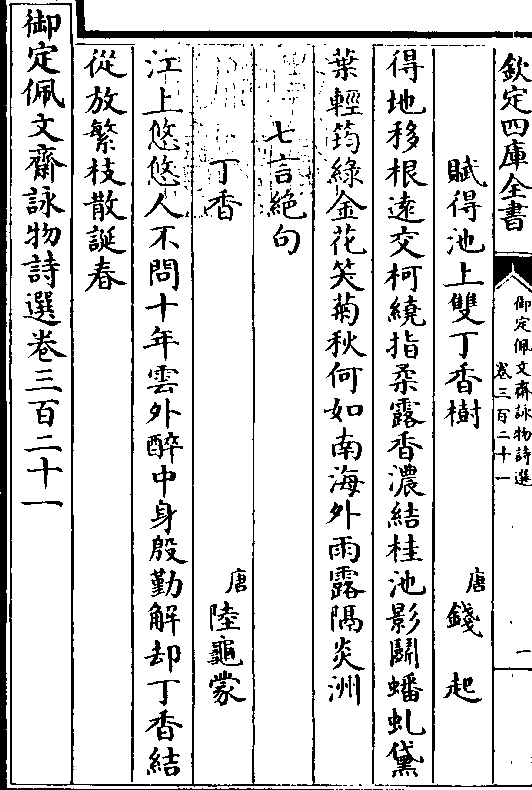 欽定四庫全書
御定佩文齋詠物詩選
卷三百二十一
一
賦得池上雙丁香樹
唐 錢起
得地移根遠交柯繞指柔露香濃結桂池影鬬蟠虬黛
葉輕筠綠金花笑菊秋何如南海外雨露隔炎洲
七言絕句
丁香
唐 陸龜蒙
江上悠悠人不問十年雲外醉中身殷勤解却丁香結
從放繁枝散誕春
御定佩文齋詠物詩選卷三百二十一